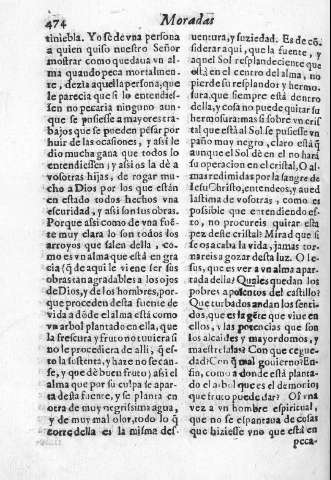 474
Moradas
tiniebla. Yo se de vna persona
a quien quiso nuestro Señor
mostrar como quedaua vn al
ma quando peca mortalmen
te, dezia aquella persona, que
le parecia que si lo entendies-
sen no pecaria ninguno aun-
que se pusiesse a mayores tra-
bajos que se pueden pẽsar por
huir de las ocasiones, y assi le
dio mucha gana que todos lo
entendiessen; y assi os la dè a
vosotras hijas, de rogar mu-
cho a Dios por los que están
en estado todos hechos vna
escuridad, y asi son sus obras.
Porque assi como de vna fuẽ-
te muy clara lo son todos los
arroyos que salen della, co-
mo es vn alma que está en gra
cia (q̃ de aqui le viene ser sus
obras tan agradables a los ojos
de Dios, y de los hombres, por
que proceden desta fuente de
vida a dõde el alma està como
vn arbol plantado en ella, que
la frescura y fruto no tuuiera si
no le procediera de alli, q̃ es-
to la sustenta, y haze no secar-
se, y que dè buen fruto) assi el
alma que por su culpa se apar-
ta desta fuente, y se planta en
otra de muy negrissima agua,
y de muy mal olor, todo lo q̃
corre della es la misma des-
uentura, y suziedad. Es de cõ-
siderar aqui, que la fuente, y
aquel Sol resplandeciente que
està en el centro del alma, no
pierde su resplandor y hermo-
sura, que siempre está dentro
della, y cosa no puede quitar su
hermosura: mas si sobre vn cris
tal que està al Sol se pusiesse vn
paño muy negro, claro está q̃
aunque el Sol de en el no hará
su operacion en el cristal, O al-
mas redimidas por la sangre de
Iesu Christo, entendeos, y aued
lastima de vosotras, como es
posible que entendiendo es-
to, no procureis quitar esta
pez deste cristal? Mirad que si
se os acaba la vida, jamas tor-
nareis a gozar desta luz. O Ie-
sus, que es ver a vn alma apar-
tada della? Quales quedan los
pobres aposentos del castillo?
Que turbados andan los senti-
dos, que es la gẽte que viue en
ellos, y las potencias que son
los alcaides y mayordomos, y
maestresalas? Con que cegue-
dad? Con q̃ mal gouierno? En
fin, como a donde està planta-
do el arbol que es el demonio,
que fruto puede dar? Oi vna
vez a vn hombre espiritual,
que no se espantaua de cosas
que hiziesse vno que està en
peca-